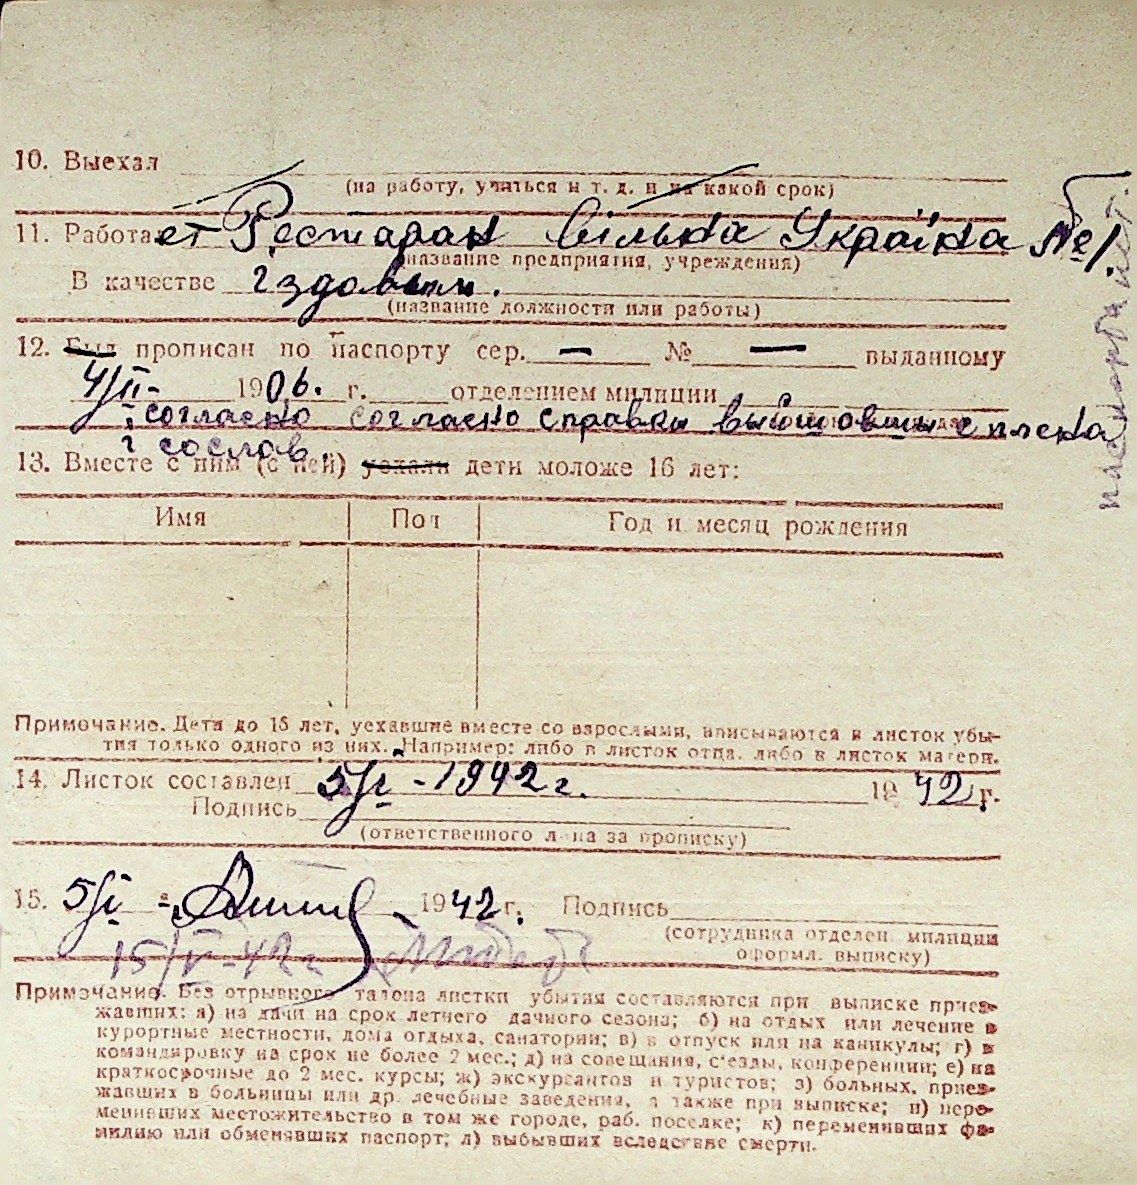 10. Выехал
(на работу, учиться и т. д. и на какой срок)
11. Работает Ресторан Вільна Україна №1.
(название предприятия, учреждения)
В качестве їздовым.
(название должности или работы)
12. Был прописан по паспорту сер. — № — выданному
4/II- 1906. г. отделением милиции
согласно согласно справки с плена
13. Вместе с ним (с ней) уехали дети моложе 16 лет:
Имя Пол Год и месяц рождения
Примечание. Дети до 16 лет, уехавшие вместе со взрослыми, вписываются в листок убы-
тия только одного из них. Например: либо в листок отца, либо в листок матери.
14. Листок составлен 5/VI - 1942 г. 1942 г.
Подпись
(ответственного лица за прописку)
15. 5/VI 1942 г. Подпись
(сотрудника отделен. милиции
оформл. выписку)
15/V-42 г.
Примечание. Без отрывного талона листки убытия составляются при выписке приез-
жавших: а) на дачи на срок летнего дачного сезона; б) на отдых или лечение в
курортные местности, дома отдыха, санатории; в) в отпуск или на каникулы; г) в
командировку на срок не более 2 мес.; д) на совещания, с'езды, конференции; е) на
краткосрочные до 2 мес. курсы; ж) экскурсантов и туристов; з) больных, приез-
жавших в больницы или др. лечебные заведения, а также при выписке; и) пере-
менивших местожительство в том же городе, раб. поселке; к) переменивших фа-
милию или обменявших паспорт; л) выбывших вследствие смерти.